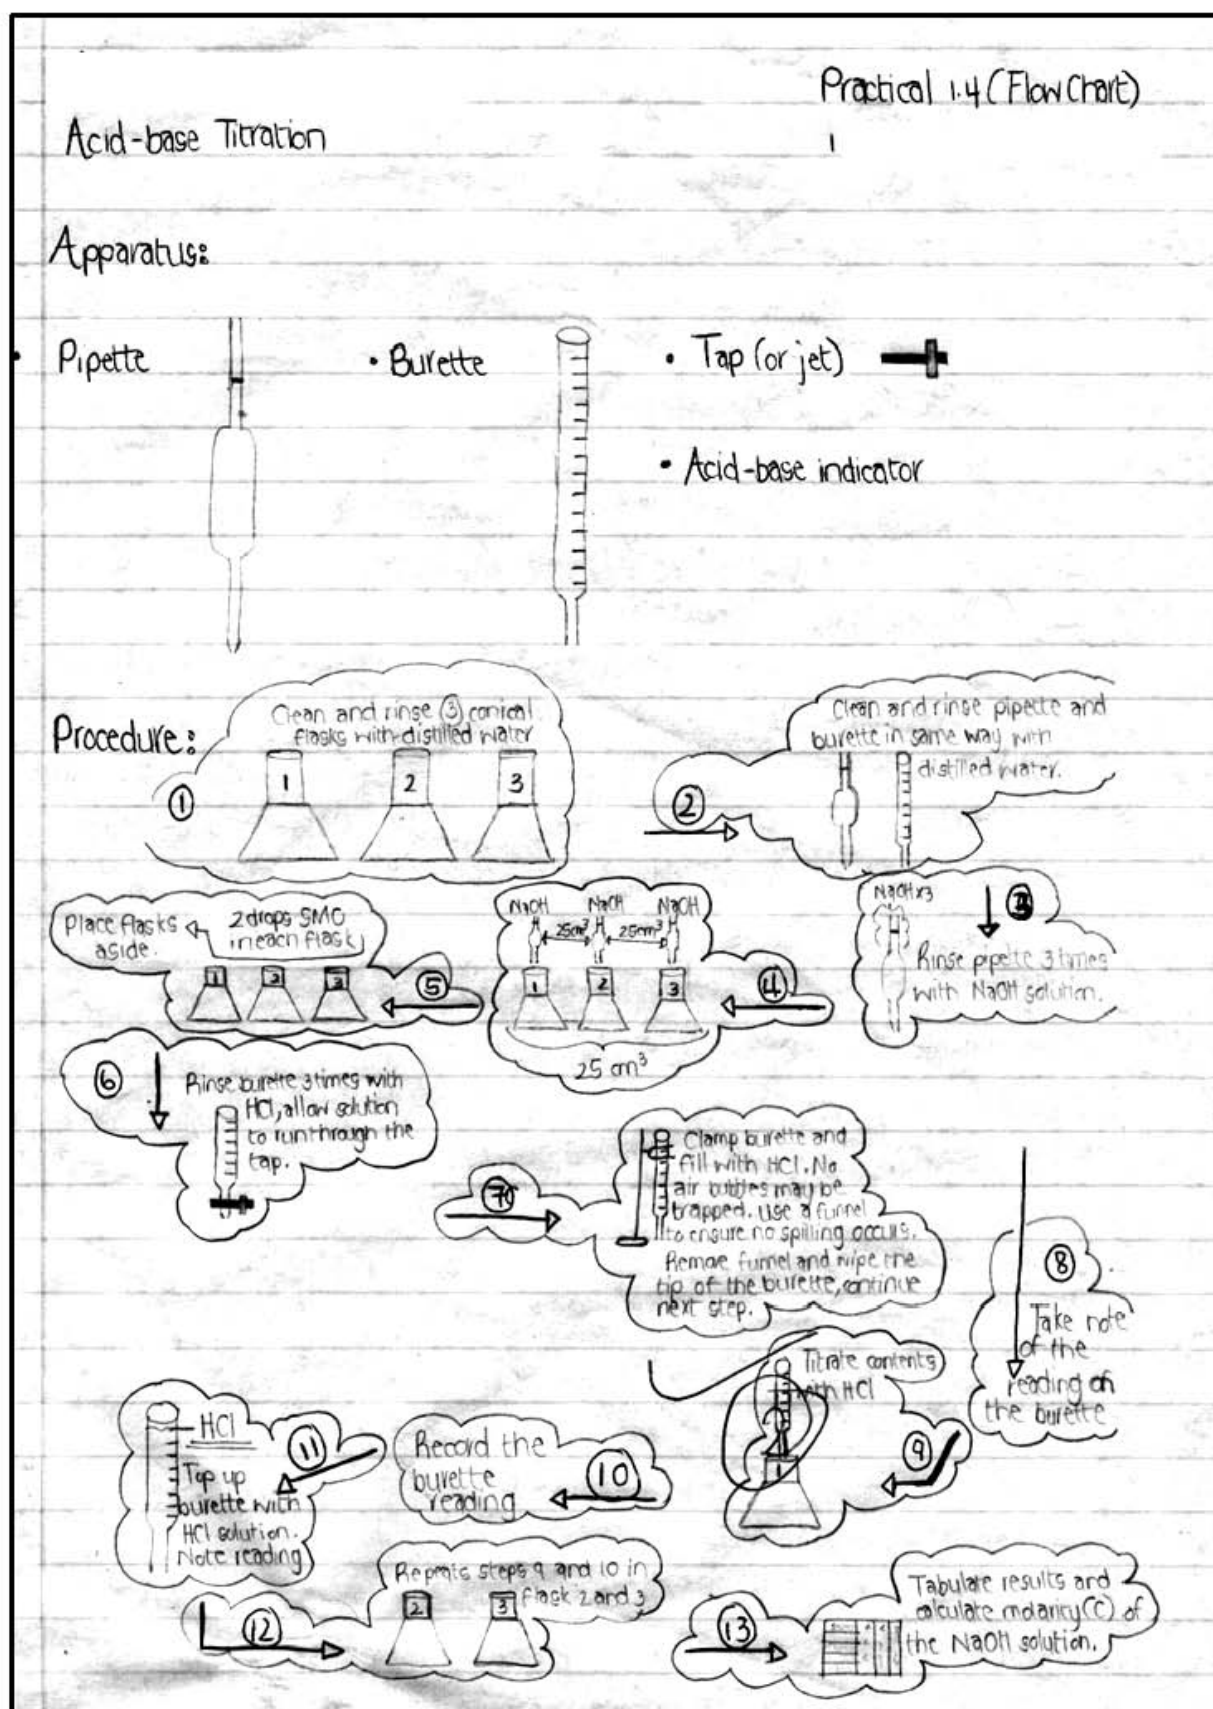 Practical 1.4 (Flow Chart)
Acid-base Titration
1
Apparatus:
• Pipette
• Burette
• Tap (or jet)
• Acid-base indicator
Procedure:
①
Clean and rinse ③ conical
flasks with distilled water
1 2 3
②
Clean and rinse pipette and
burette in same way with
distilled water.
NaOH x3
Rinse pipette 3 times
with NaOH solution.
④
NaOH NaOH NaOH
25cm³ 25cm³
1 2 3
25 cm³
⑤
2 drops SMO
in each flask
Place flasks
aside.
1 2 3
⑥
Rinse burette 3 times with
HCl, allow solution
to run through the
tap.
⑦
Clamp burette and
fill with HCl. No
air bubbles may be
trapped. Use a funnel
to ensure no spilling occurs.
Remove funnel and wipe the
tip of the burette, continue
next step.
⑧
Take note
of the
reading on
the burette
⑨
Titrate contents
with HCl
1
⑩
Record the
burette
reading
⑪
HCl
Top up
burette with
HCl solution.
Note reading
⑫
Repeats steps 9 and 10 in
flask 2 and 3
2 3
⑬
Tabulate results and
calculate molarity (C) of
the NaOH solution.